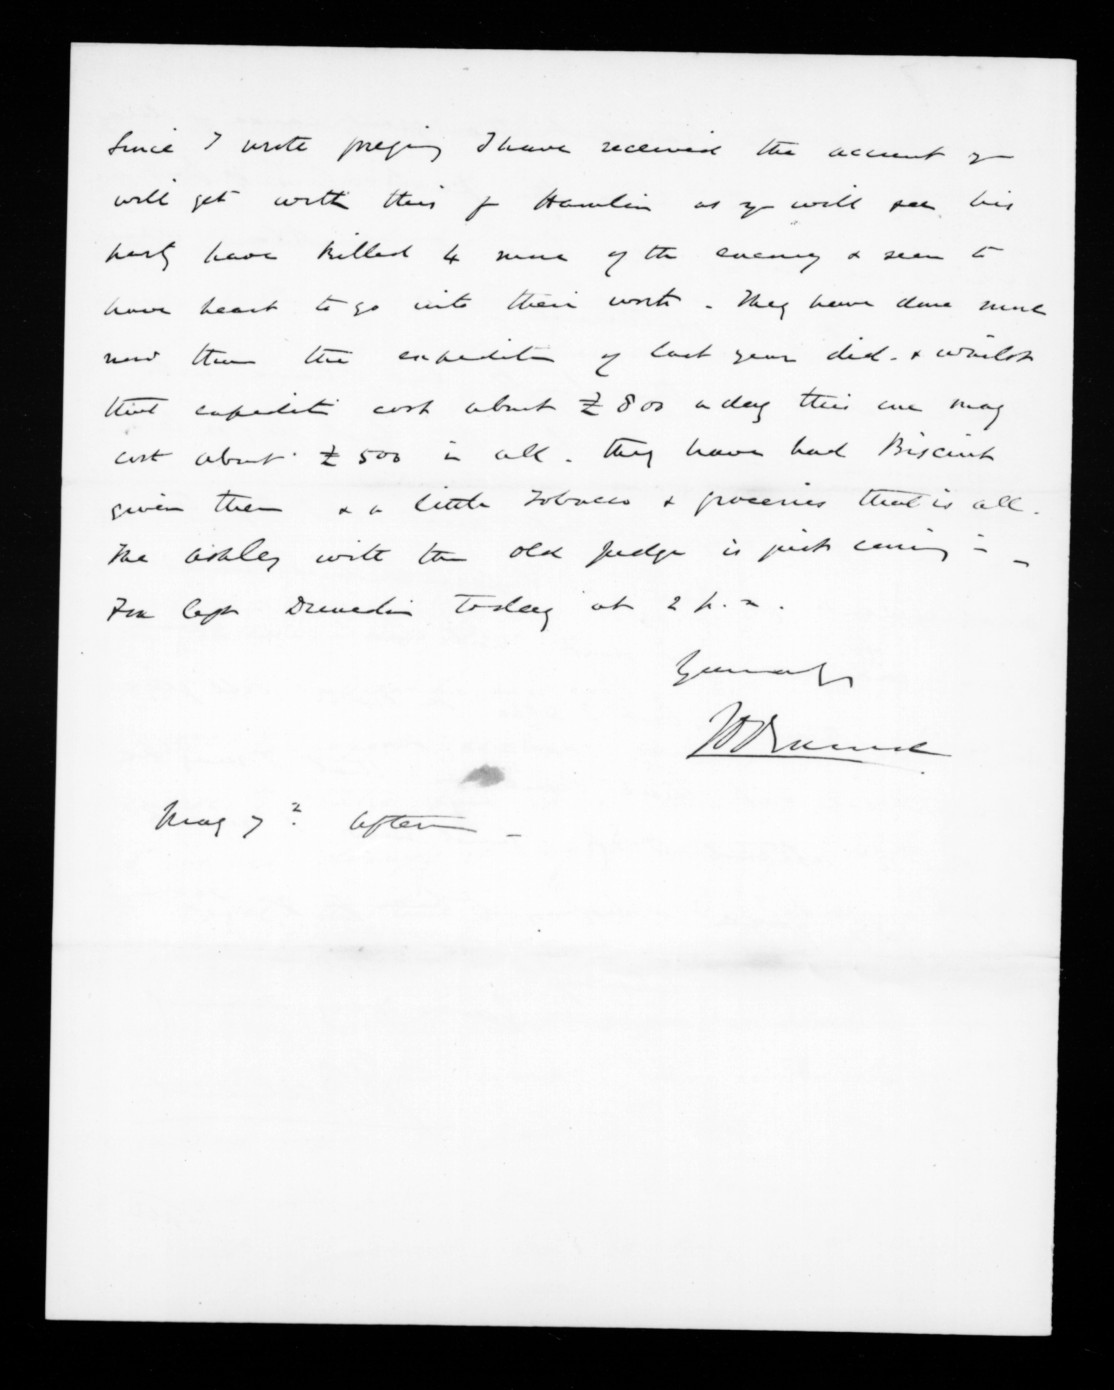 Since I wrote pregoing I have received the account yr
will get with this fr Hamlin as yr will see his
party have killed 4 more of the enemy & seem to
have heart to go into their work. They have done more
now than the expedition of last year did. & whilst
that expeditn cost about £800 a day this one may
cost about £500 in all. They have had Biscuit
given them & a little Tobacco & groceries that is all.
The Ashley with the old Judge is just coming in _
Fox left Dunedin Today at 2 p.m.
Yours
May 7 Aftern _